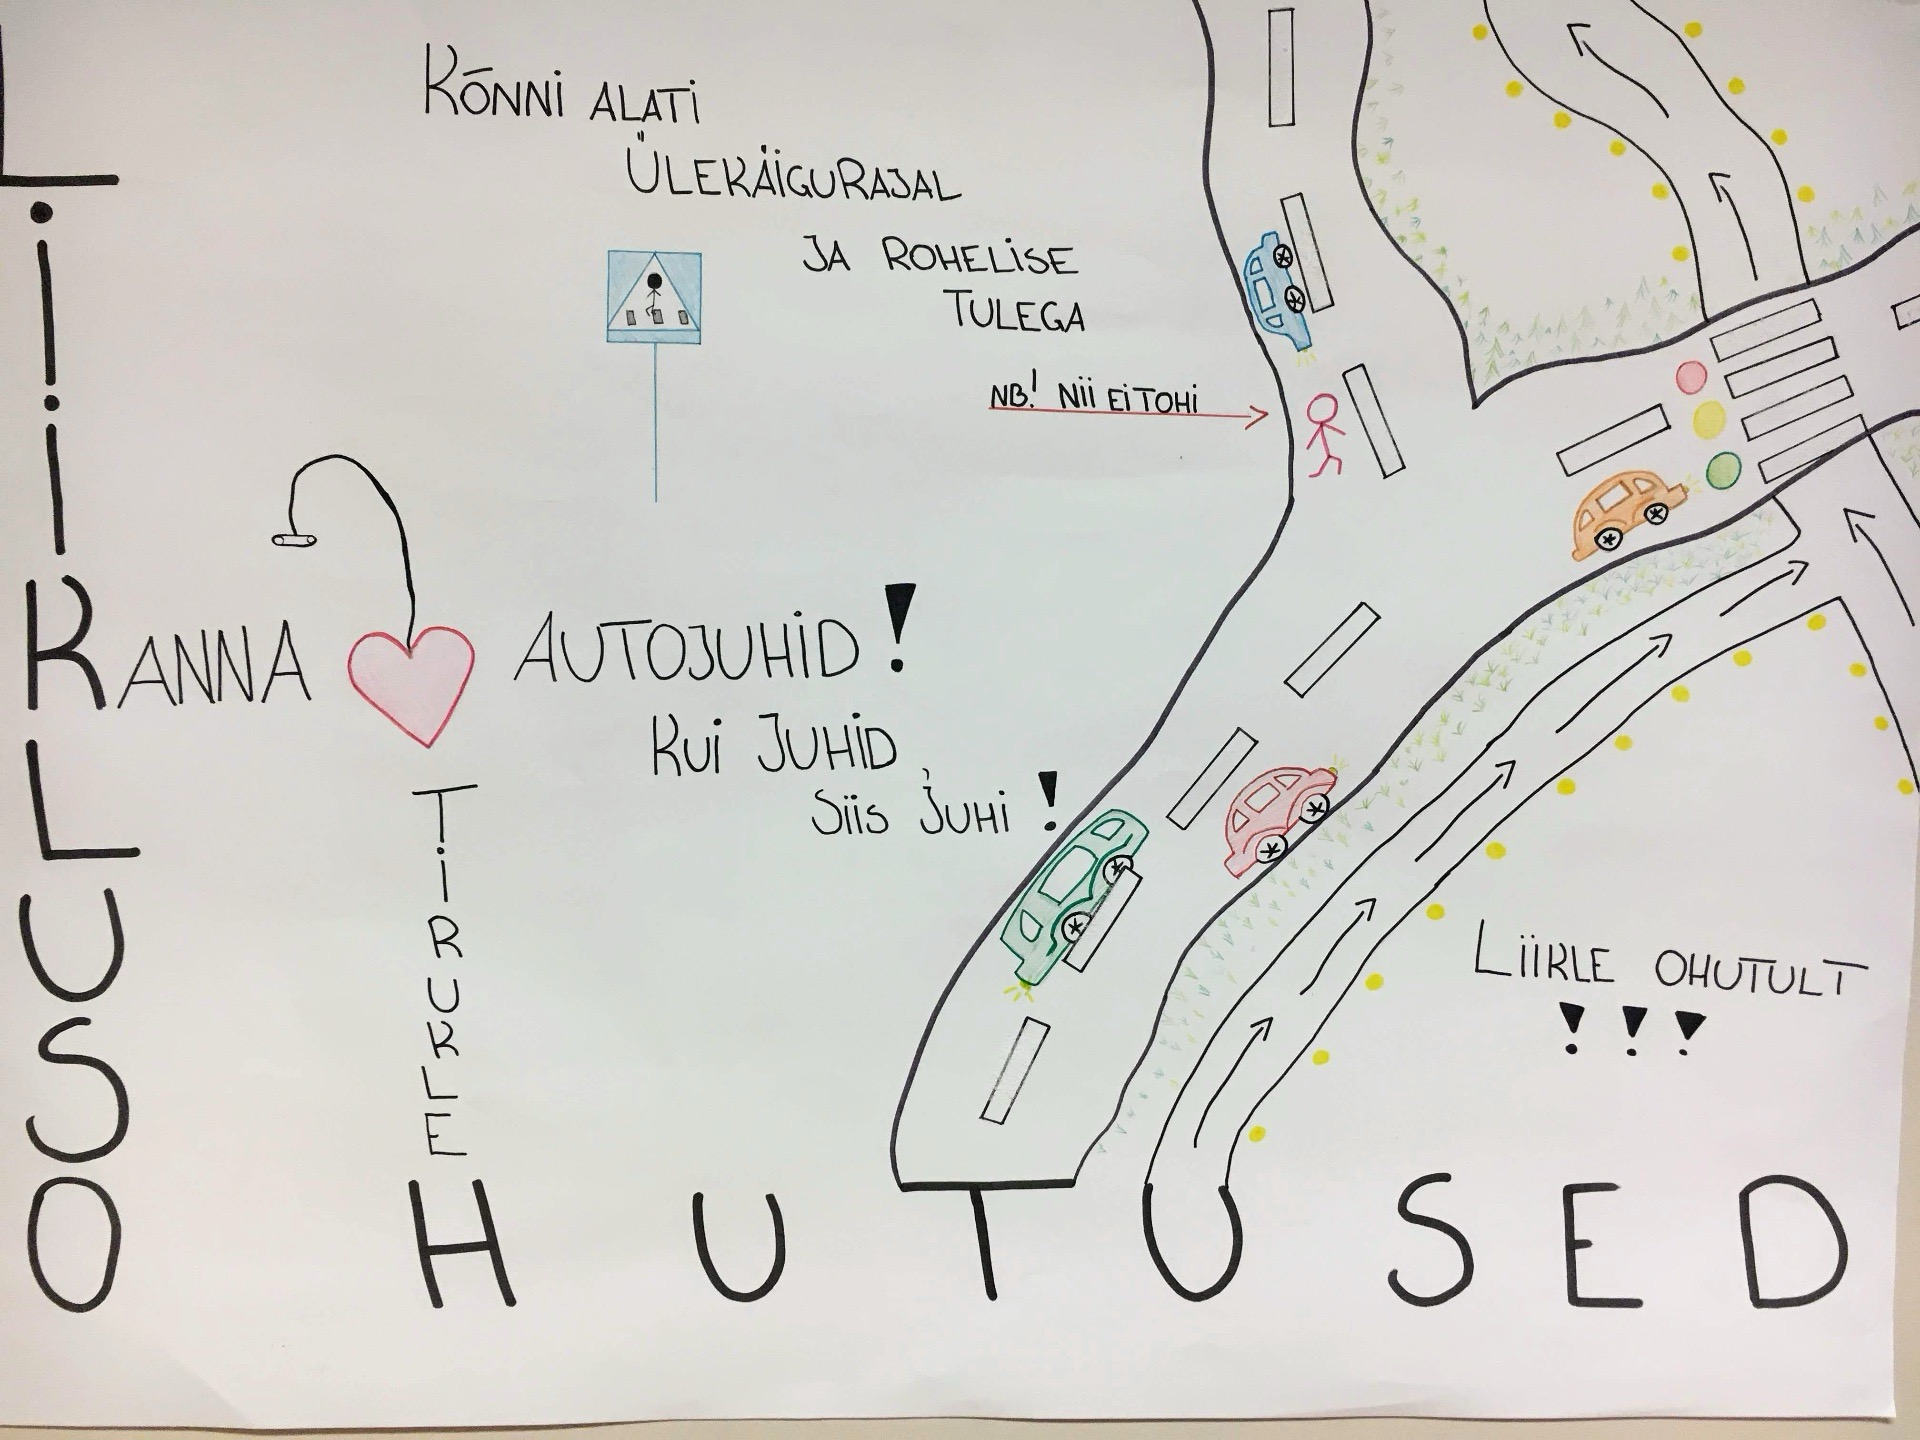 LiiKLUSOHUTUSED
KÕNNi ALATi
ÜLEKÄiGURAJAL
JA ROHELiSE
TULEGA
NB! Nii Ei TOHi
KANNA
AUTOJUHiD!
KUi JUHiD,
Siis JUHi!
TiRUKLE
LiiKLE OHUTULT
!!!